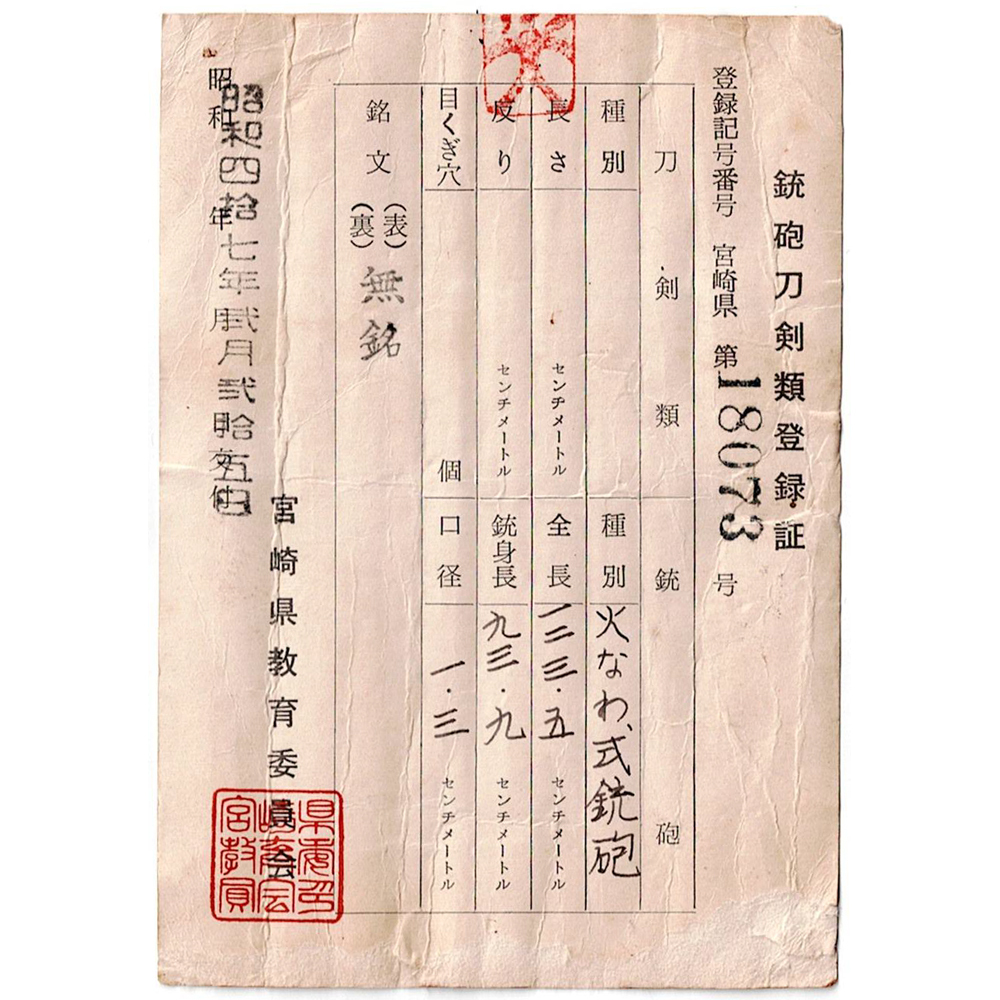 銃砲刀剣類登録証
登録記号番号 宮崎県 第18073号
刀剣類 銃砲
種別 種別 火なわ式銃砲
長さ センチメートル 全長 一二三・五 センチメートル
反り センチメートル 銃身長 九三・九 センチメートル
目くぎ穴 個 口径 一・三 センチメートル
銘文
(表)
(裏)
無銘
宮崎県教育委員会
昭和 年 月 日交付
昭和四拾七年弐月弐拾五日